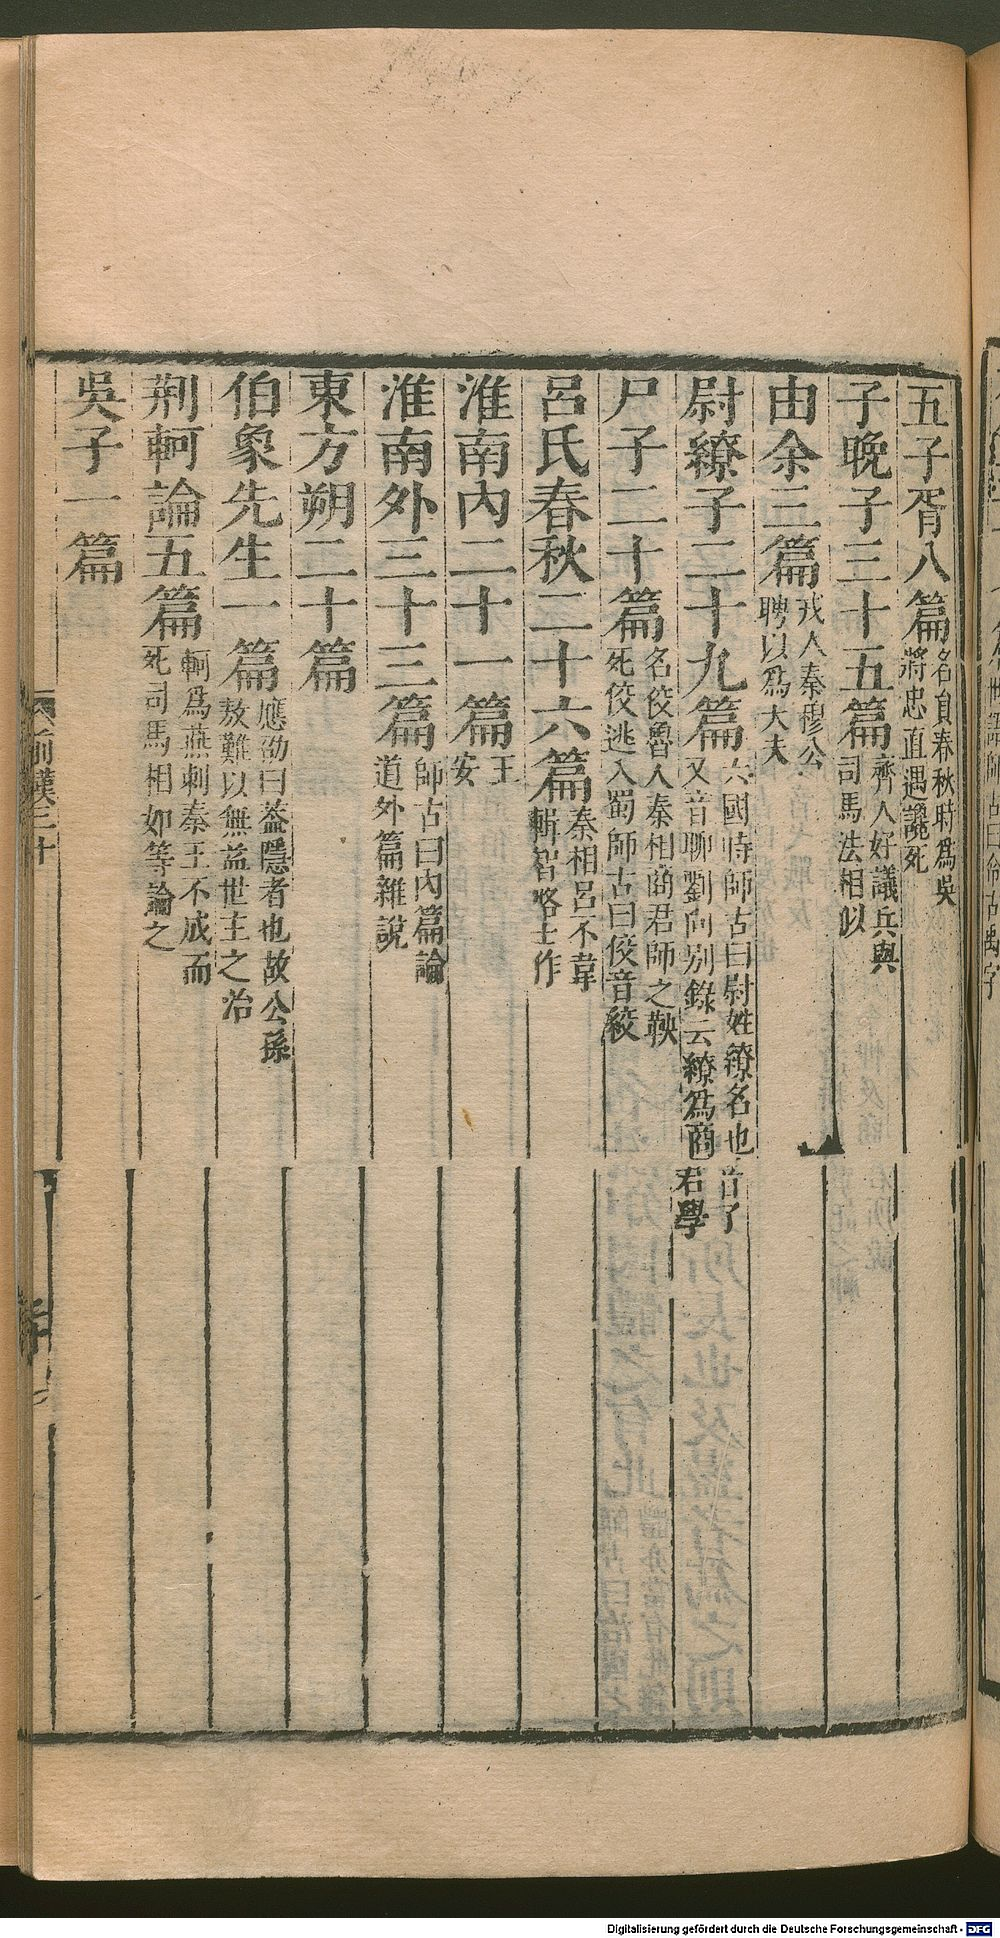 五子胥八篇 名員春秋時爲吳將忠直遇讒死
子晚子三十五篇 齊人好議兵與司馬法相似
由余三篇 戎人秦穆公聘以爲大夫
尉繚子二十九篇 六國時師古曰尉姓繚名也音了又音聊劉向別錄云繚爲商君學
尸子二十篇 名佼魯人秦相商君師之鞅死佼逃入蜀師古曰佼音絞
呂氏春秋二十六篇 秦相呂不韋輯智略士作
淮南內二十一篇 王安
淮南外三十三篇 師古曰內篇論道外篇雜說
東方朔二十篇
伯象先生一篇 應劭曰蓋隱者也故公孫敖難以無益世主之治
荆軻論五篇 軻爲燕刺秦王不成而死司馬相如等論之
吳子一篇
前漢三十
Digitalisierung gefördert durch die Deutsche Forschungsgemeinschaft - DFG